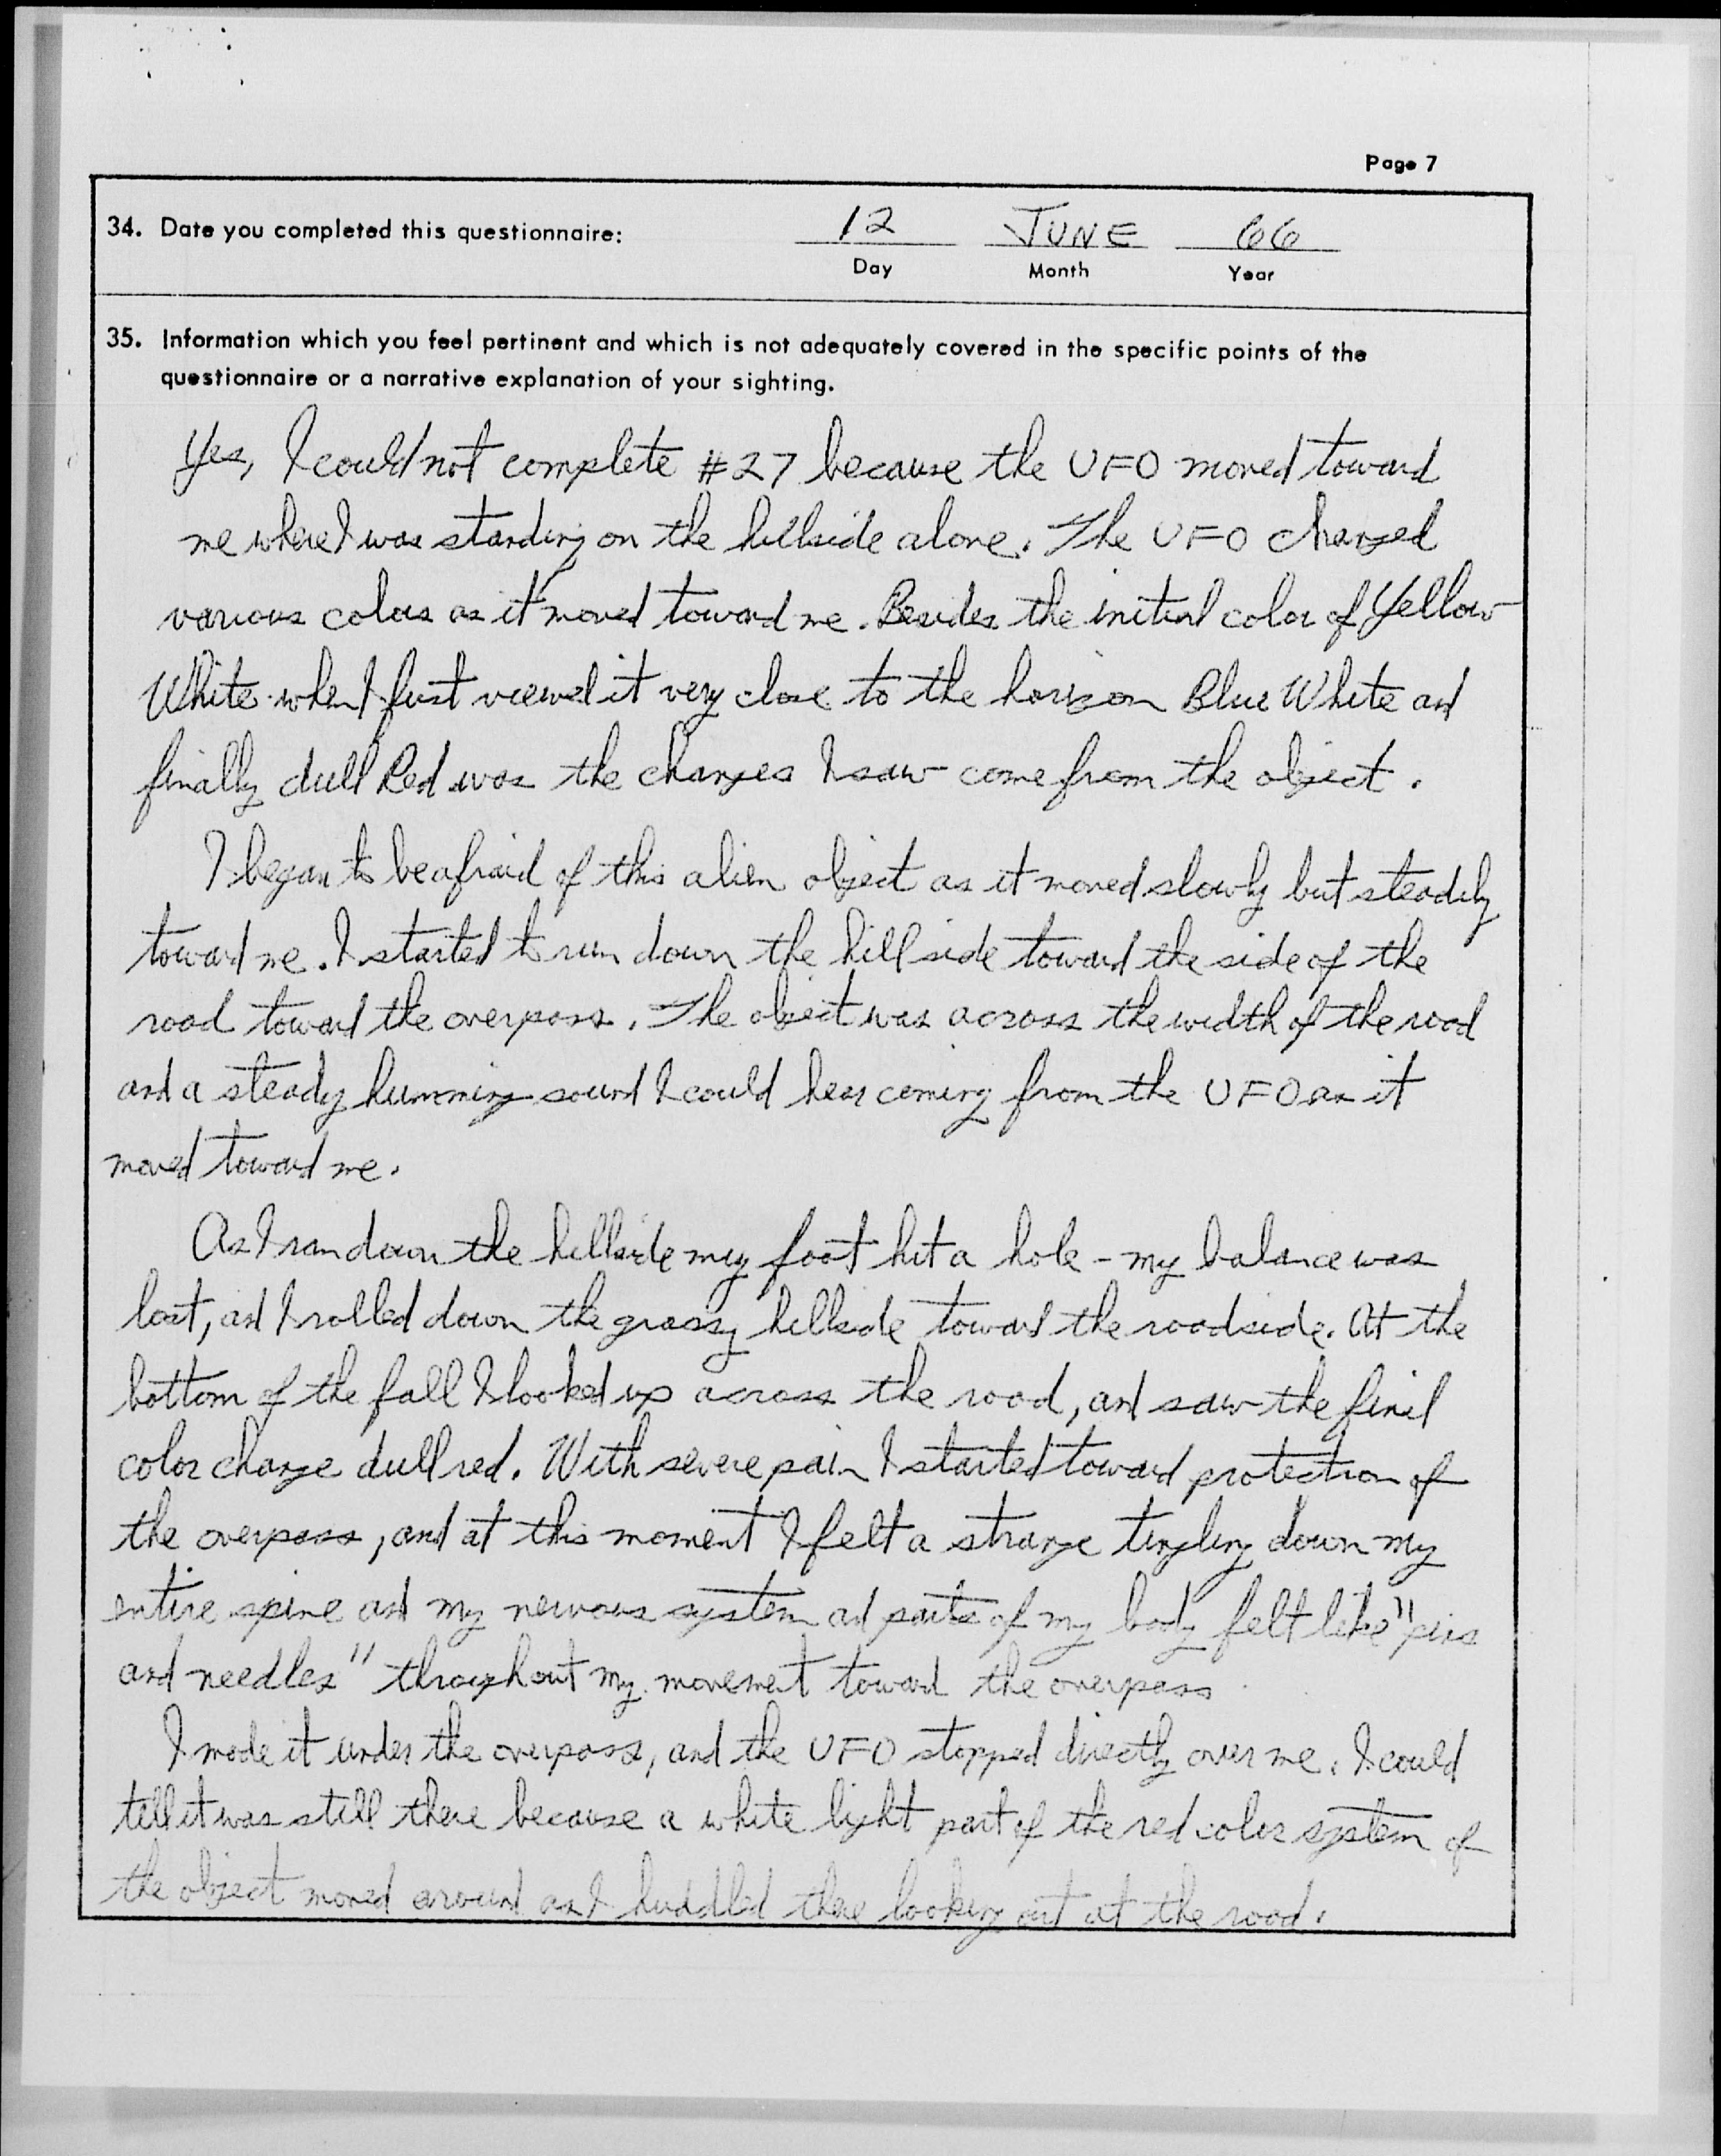 Page 7
34. Date you completed this questionnaire: 12 JUNE 66
Day Month Year
35. Information which you feel pertinent and which is not adequately covered in the specific points of the
questionnaire or a narrative explanation of your sighting.
Yes, I could not complete #27 because the UFO moved toward
me where I was standing on the hillside alone. The UFO changed
various colors as it moved toward me. Besides the initial color of Yellow
White when I first viewed it very close to the horizon Blue White and
finally dull Red was the changes I saw come from the object.
I began to be afraid of this alien object as it moved slowly but steadily
toward me. I started to run down the hillside toward the side of the
road toward the overpass. The object was across the width of the road
and a steady humming sound I could hear coming from the UFO as it
moved toward me.
As I ran down the hillside my foot hit a hole - my balance was
lost, and I rolled down the grassy hillside toward the roadside. At the
bottom of the fall I looked up across the road, and saw the final
color change dull red. With severe pain I started toward protection of
the overpass, and at this moment I felt a strange tingling down my
entire spine and my nervous system and parts of my body felt like "pins
and needles" throughout my movement toward the overpass
I made it under the overpass, and the UFO stopped directly over me. I could
tell it was still there because a white light part of the red color system of
the object moved around as I huddled there looking out at the road.